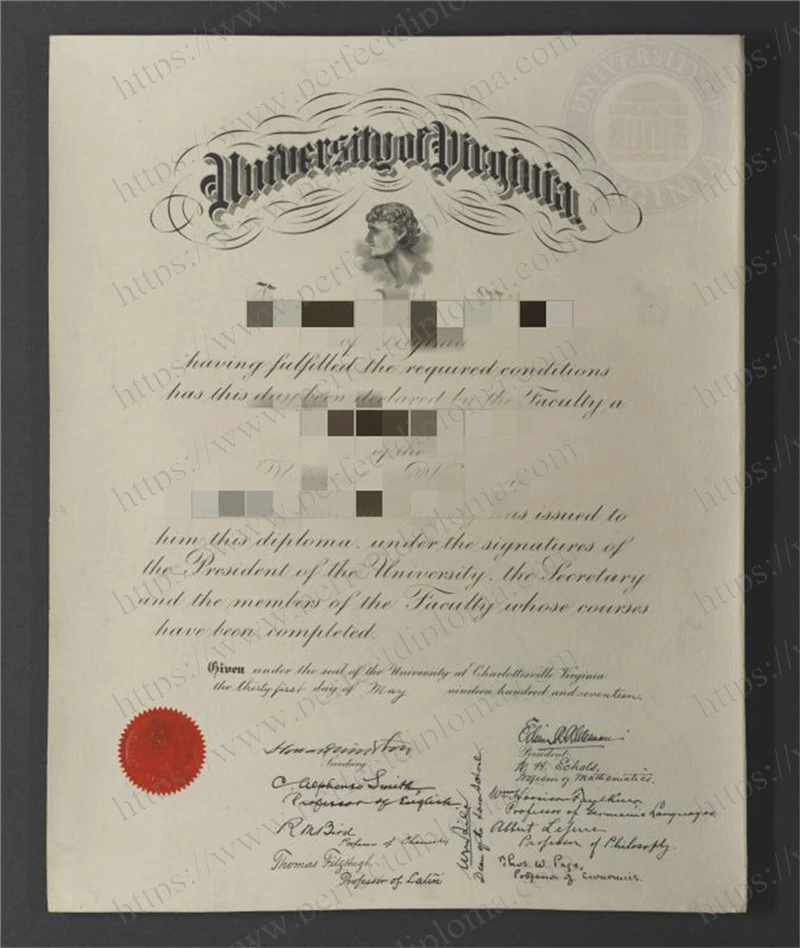 University of Virginia.
UNIVERSITY
VIRGINIA
of Virginia
having fulfilled the required conditions
has this day been declared by the Faculty a
of the
as issued to
him this diploma, under the signatures of
the President of the University, the Secretary
and the members of the Faculty whose courses
have been completed.
Given under the seal of the University at Charlottesville Virginia
the thirty first day of May nineteen hundred and seventeen.
Secretary
C. Alphonso Smith,
Professor of English.
R M Bird
Professor of Chemistry
Thomas Fitzhugh
Professor of Latin
Dean of the
President.
W. H. Echols,
Professor of Mathematics.
Wm Harrison Faulkner
Professor of Germanic Languages
Albert Lefevre
Professor of Philosophy.
Thos. W. Page,
Professor of Economics.
https://www.perfectdiploma.com